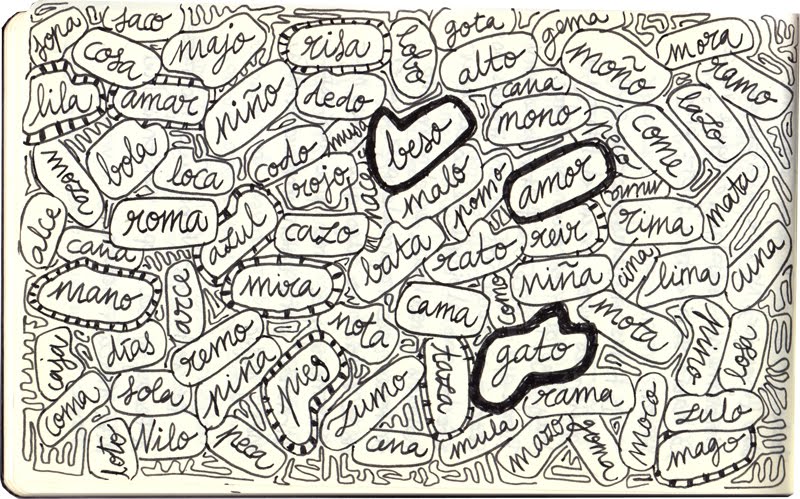 sopa
saco
cosa
majo
risa
lobo
gota
alto
gema
moño
mora
ramo
lila
amar
niño
dedo
beso
cana
mono
come
lazo
moza
bola
loca
codo
muso
rojo
malo
pomo
amor
mata
alce
roma
azul
cazo
bata
rato
reir
rima
caña
mano
arce
mira
cama
como
niña
cima
lima
cuna
caja
días
remo
nota
gato
mota
coma
sola
piña
pies
zumo
taza
rama
moco
losa
Zulo
loto
Nilo
peca
cena
mula
mazo
goma
mago